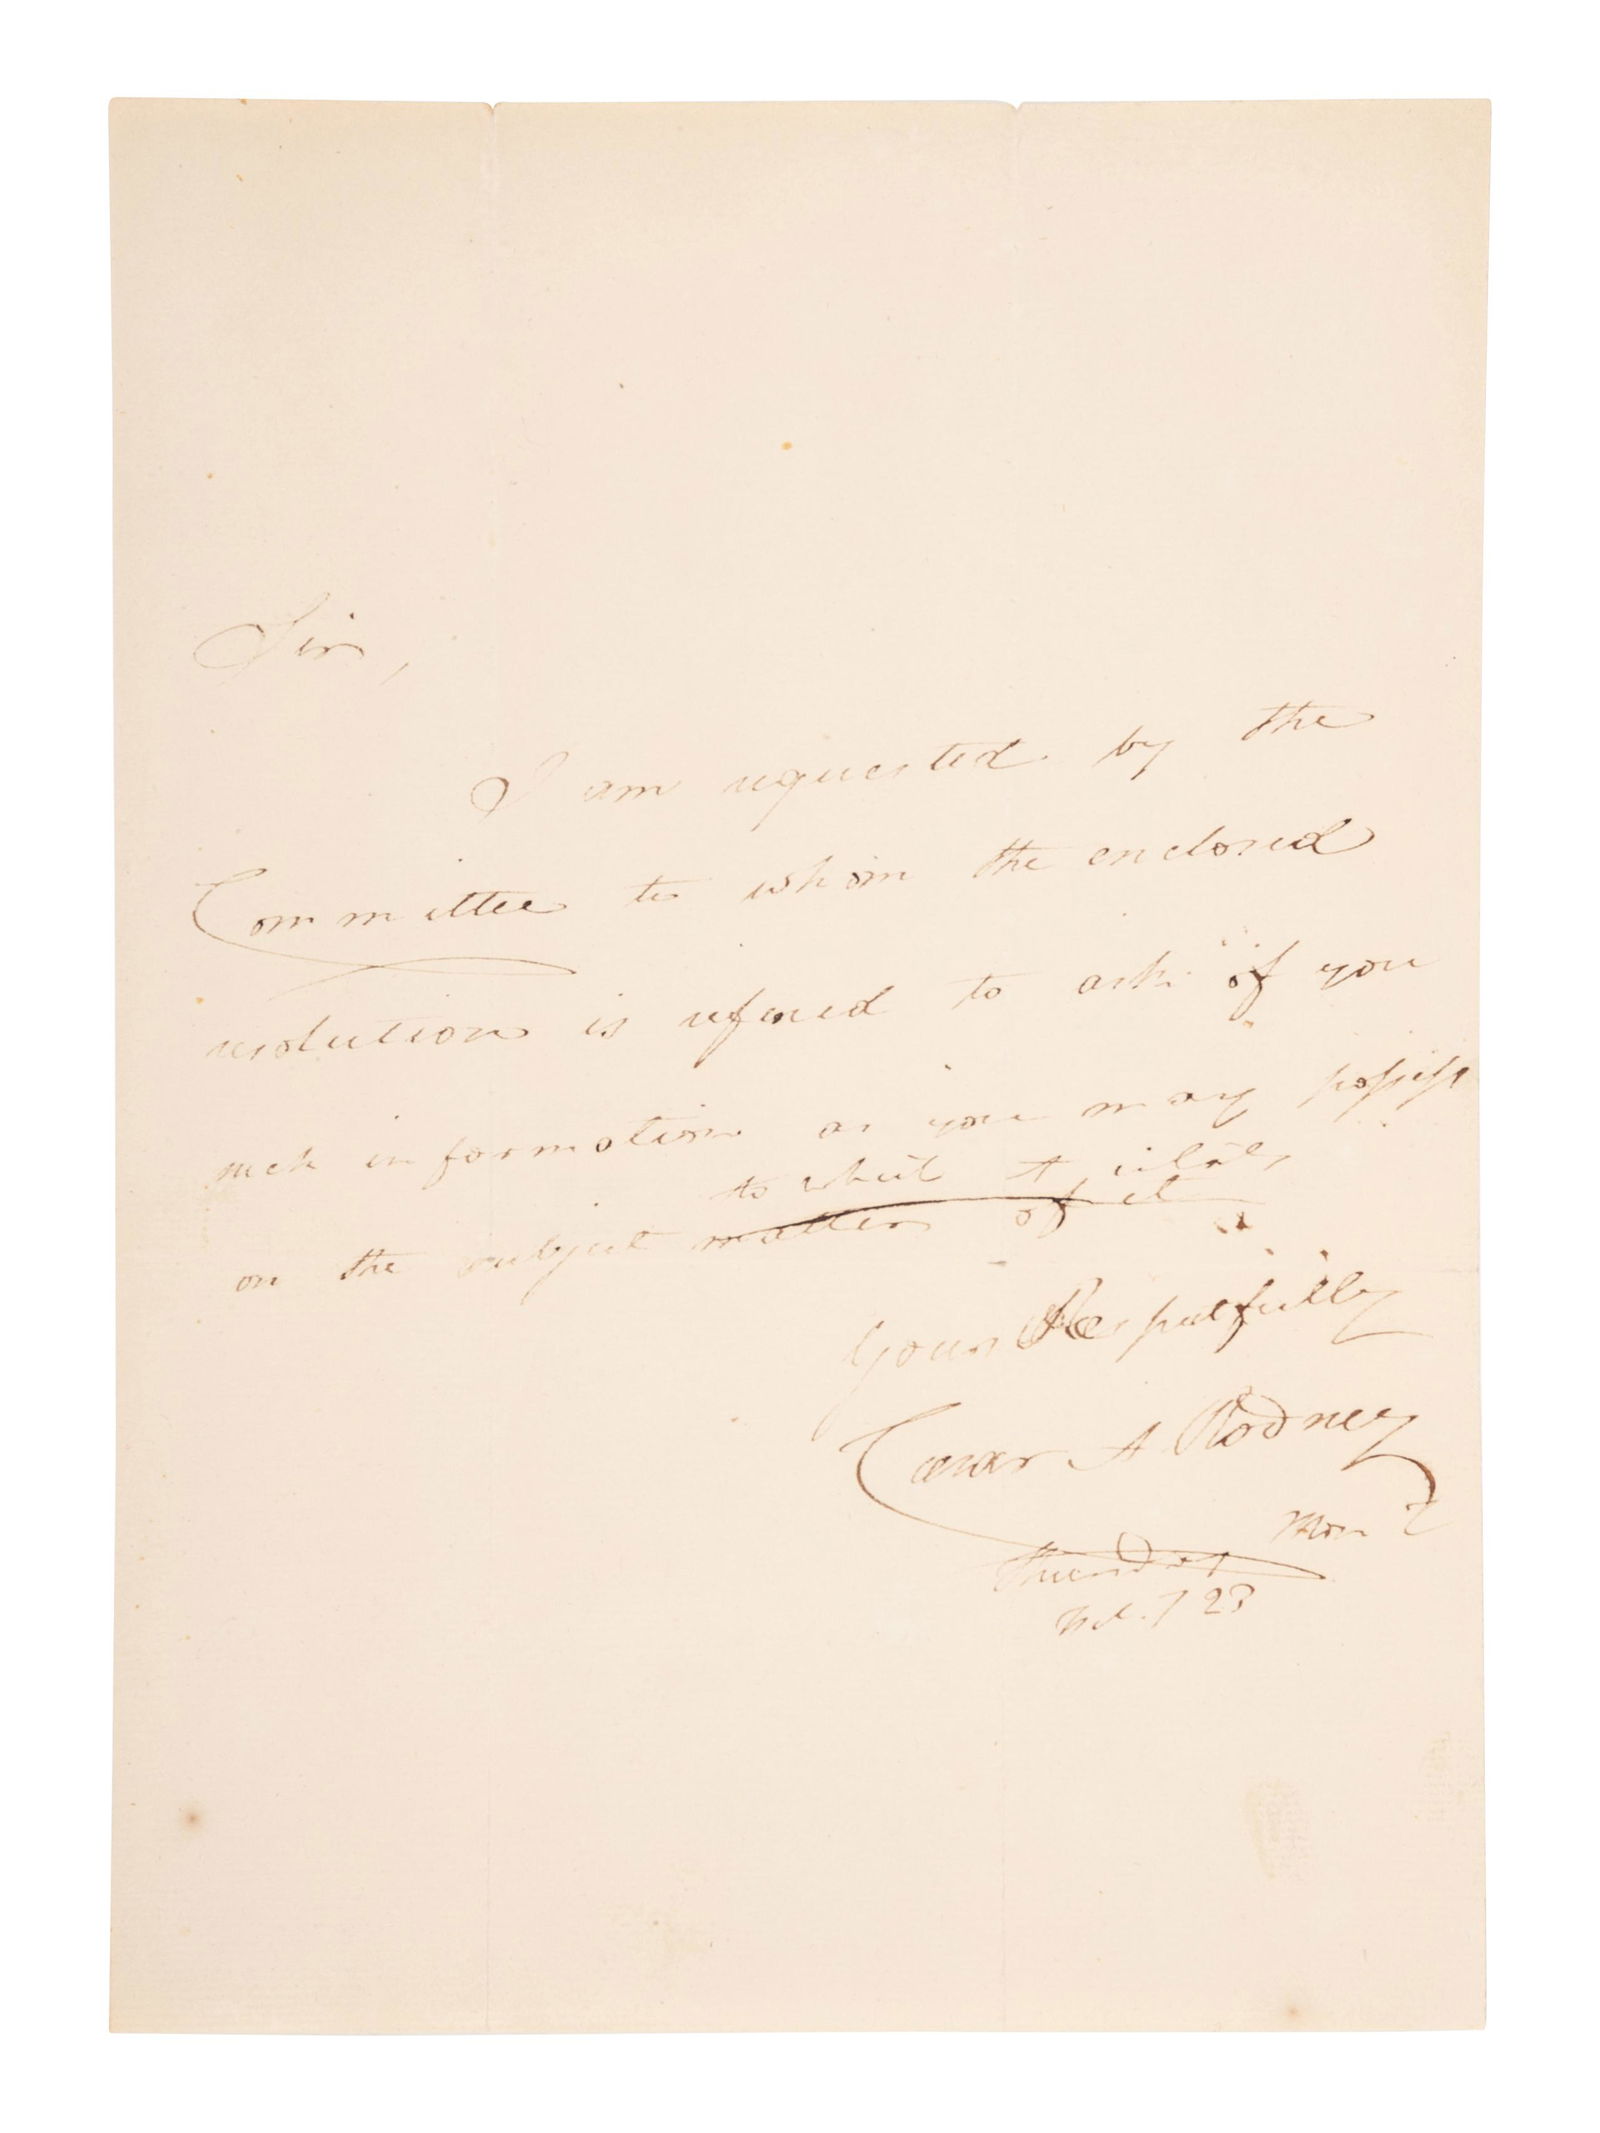 Sir,
I am requested by the
Committee to whom the enclosed
resolution is referred to ask of you
such information as you may possess
to which it relates
on the subject matter of it
Yours Respectfully
Caesar A Rodney
Thursday Morn
Feb. 7 23